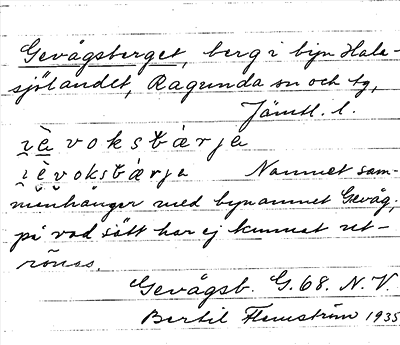 Gevågsberget, berg i byn Hala-
sjölandet, Ragunda sn och tg,
Jämtl. l.
i̯èvoksbárja
i̯èvoksbárja Namnet sam-
manhänger med bynamnet Gevåg,
på vad sätt har ej kunnat ut-
rönas.
Gevågsb. G. 68. N. V
Bertil Flemström 1935